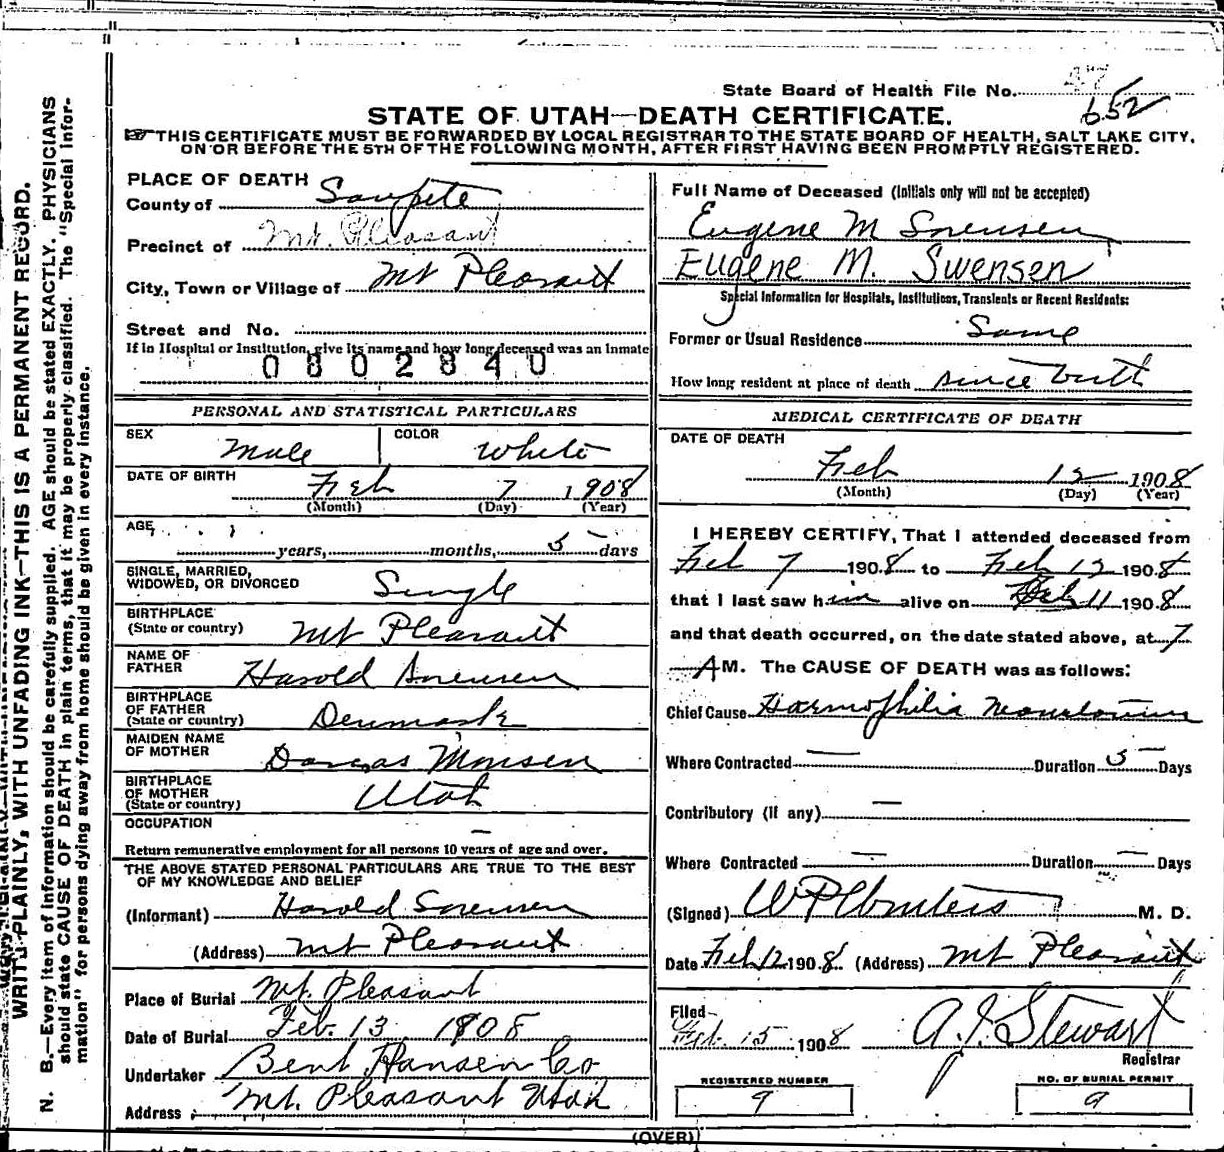 State Board of Health File No. 47
652
STATE OF UTAH—DEATH CERTIFICATE.
THIS CERTIFICATE MUST BE FORWARDED BY LOCAL REGISTRAR TO THE STATE BOARD OF HEALTH, SALT LAKE CITY,
ON OR BEFORE THE 5TH OF THE FOLLOWING MONTH, AFTER FIRST HAVING BEEN PROMPTLY REGISTERED.
PLACE OF DEATH
County of Sanpete
Precinct of Mt. Pleasant
City, Town or Village of Mt Pleasant
Street and No.
If in Hospital or Institution, give its name and how long deceased was an Inmate
0802840
PERSONAL AND STATISTICAL PARTICULARS
SEX Male COLOR White
DATE OF BIRTH Feb 7 1908
(Month) (Day) (Year)
AGE
years, months, 5 days
SINGLE, MARRIED,
WIDOWED, OR DIVORCED Single
BIRTHPLACE
(State or country) Mt Pleasant
NAME OF
FATHER Harold Sorensen
BIRTHPLACE
OF FATHER
(State or country) Denmark
MAIDEN NAME
OF MOTHER Dorcas Monsen
BIRTHPLACE
OF MOTHER
(State or country) Utah
OCCUPATION —
Return remunerative employment for all persons 10 years of age and over.
THE ABOVE STATED PERSONAL PARTICULARS ARE TRUE TO THE BEST
OF MY KNOWLEDGE AND BELIEF
(Informant) Harold Sorensen
(Address) Mt Pleasant
Place of Burial Mt. Pleasant
Date of Burial Feb. 13 1908
Undertaker Bent Hansen Co
Address Mt. Pleasant Utah
Full Name of Deceased (Initials only will not be accepted)
Eugene M Sorensen
Eugene M. Swensen
Special Information for Hospitals, Institutions, Transients or Recent Residents:
Former or Usual Residence Same
How long resident at place of death since birth
MEDICAL CERTIFICATE OF DEATH
DATE OF DEATH
Feb 12 1908
(Month) (Day) (Year)
I HEREBY CERTIFY, That I attended deceased from
Feb 7 1908 to Feb 12 1908
that I last saw him alive on Feb 11 1908
and that death occurred, on the date stated above, at 7
AM. The CAUSE OF DEATH was as follows:
Chief Cause Haemophilia Neonatorum
Where Contracted — Duration 5 Days
Contributory (if any) —
Where Contracted — Duration — Days
(Signed) M. D.
Date Feb 12 1908. (Address) Mt Pleasant
Filed
Feb. 15 1908 A. J. Stewart
Registrar
REGISTERED NUMBER
9
NO. OF BURIAL PERMIT
9
(OVER)
WRITE PLAINLY, WITH UNFADING INK—THIS IS A PERMANENT RECORD.
N. B.—Every item of information should be carefully supplied. AGE should be stated EXACTLY. PHYSICIANS
should state CAUSE OF DEATH in plain terms, that it may be properly classified. The "Special Infor-
mation" for persons dying away from home should be given in every instance.